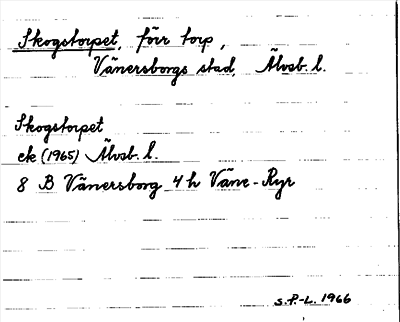 Skogstorpet, förr torp,
Vänersborgs stad, Älvsb. l.
Skogstorpet
ek (1965) Älvsb. l.
8 B Vänersborg 4 h Väne-Ryr
S.P.-L. 1966